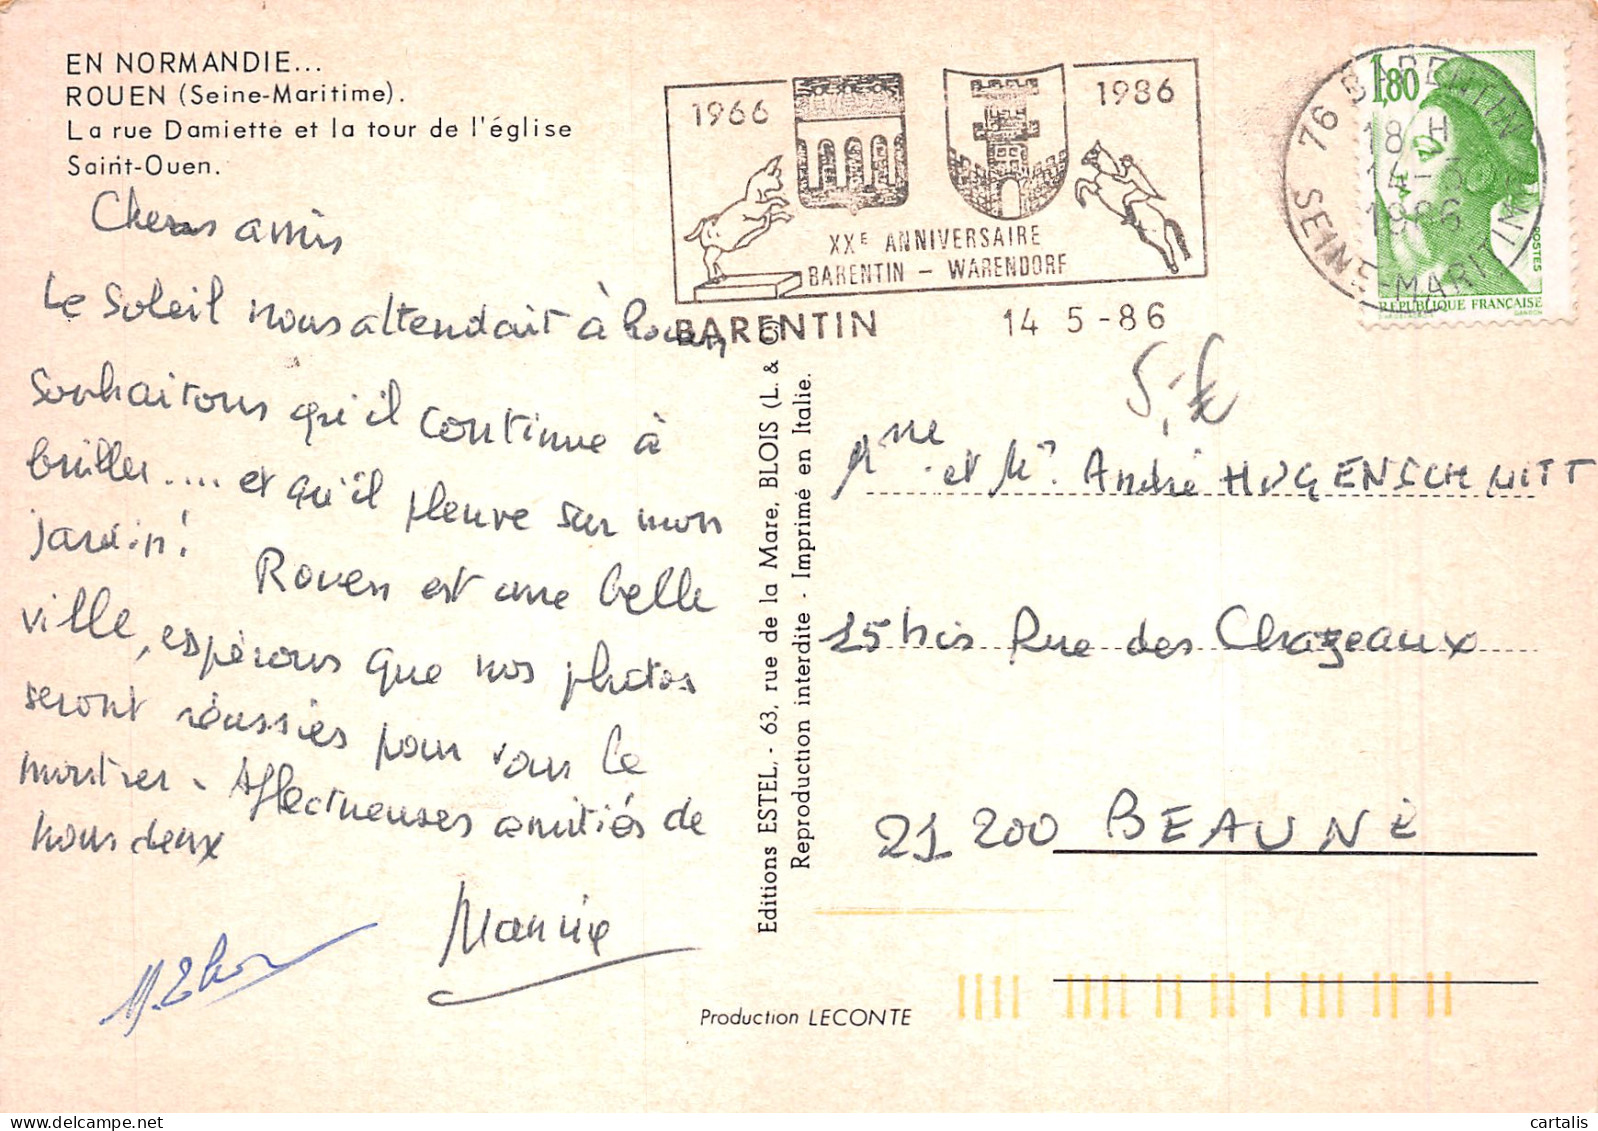 EN NORMANDIE...
ROUEN (Seine-Maritime).
La rue Damiette et la tour de l'église
Saint-Ouen.
Chers amis
Le Soleil nous attendait à Rouen,
souhaitons qu'il continue à
briller.... et qu'il pleuve sur mon
jardin! Rouen est une belle
ville, espérons que nos photos
seront réussies pour vous le
montrer. Affectueuses amitiés de
nous deux
1966
1986
XXE ANNIVERSAIRE
BARENTIN - WARENDORF
BARENTIN 14 5-86
76 BARENTIN
18 H
14-5
1986
SEINE-MARITIME
1,80
POSTES
RÉPUBLIQUE FRANÇAISE
GANDON
Mme et Mr. André HUGENSCHMITT
15 bis Rue des Chazeaux
21 200 BEAUNE
Editions ESTEL, - 63, rue de la Mare, BLOIS (L. & C)
Reproduction interdite - Imprimé en Italie.
Production LECONTE
cartalis